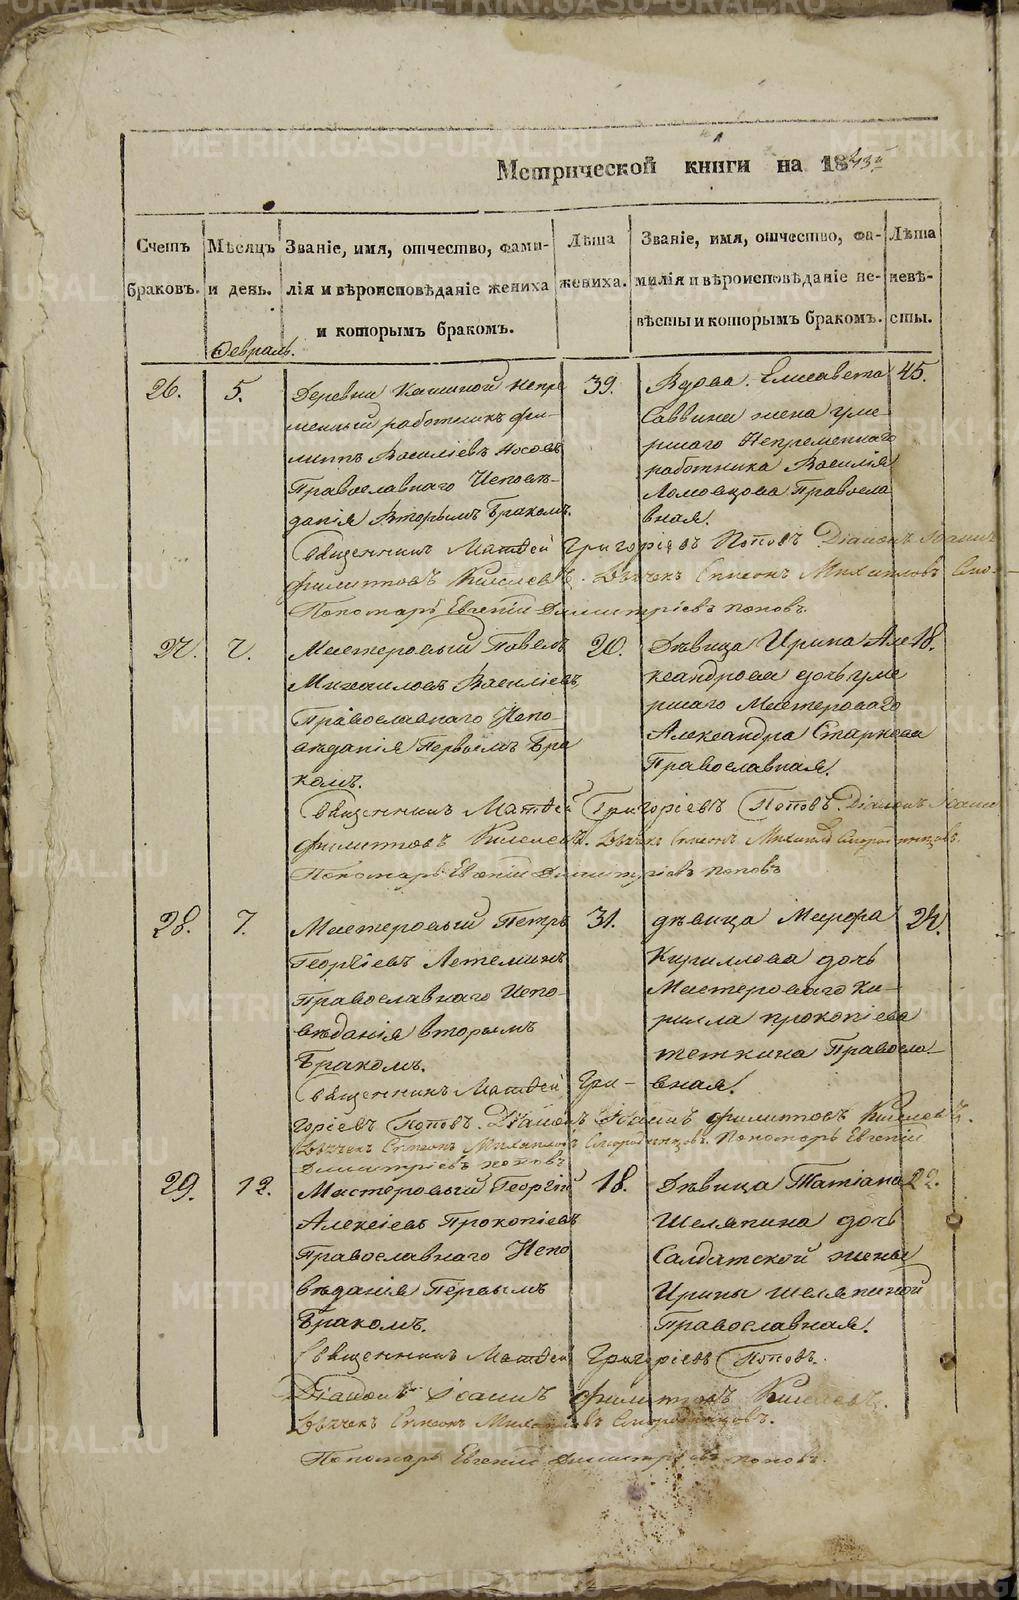 Метрической книги на 1843й
Счетъ браковъ.
Мѣсяцъ и день.
Званіе, имя, отчество, фами-
лія и вѣроисповѣданіе жениха
и которымъ бракомъ.
Лѣта жениха.
Званіе, имя, отчество, фа-
милія и вѣроисповѣданіе не-
вѣсты и которымъ бракомъ.
Лѣта невѣ-
сты.
Февраль.
26.
5.
Деревни Кашиной непре
менный работникъ фи-
липъ Василіевъ Носовъ
Православнаго Исповѣ-
данія Вторымъ Бракомъ.
39.
Вдова Елисавета
Саввина жена уме
ршаго Непременнаго
работника Василія
Ломовцова Правосла
вная.
45.
Священникъ Матѳей Григоріевъ Поповъ Діаконъ Іоаннъ
филитовъ Киселевъ. Дьячекъ Симеонъ Михаиловъ Смо-
Пономарь Евгеній Димитріевъ поповъ.
27.
7.
Мастеровый Павелъ
Михаиловъ Василіевъ
Православнаго Испо-
вѣданія Первымъ Бра
комъ.
20.
Дѣвица Ирина Але
ксандрова дочь уме
ршаго Мастероваго
Александра Старкова
Православная.
18.
Священникъ Матѳей Григоріевъ Поповъ. Діаконъ Іоаннъ
филитовъ Киселевъ. Дьячекъ Симеонъ Михаилов Смородинцовъ.
Пономарь Евгеній Димитріевъ поповъ
28.
7.
Мастеровый Петръ
Георгіевъ Летеминъ
Православнаго Испо-
вѣданія вторымъ
Бракомъ.
31.
дѣвица Марфа
Кириллова дочь
Мастероваго Ки-
рилла прокопіева
теткина Правосла-
вная.
24.
Священникъ Матѳей Гри-
горіевъ Поповъ. Діаконъ Іоаннъ филитовъ Киселевъ.
Дьячекъ Симеонъ Михаиловъ Смородинцовъ. Пономарь Евгеній
Димитріевъ поповъ
29.
12.
Мастеровый Георгій
Алексіевъ Прокопіевъ
Православнаго Испо
вѣданія Первымъ
Бракомъ.
18.
Дѣвица Татіана
Шеляпина дочь
Салдатской жены
Ирины шеляпиной
Православная.
22.
Священникъ Матѳей Григоріевъ Поповъ.
Діаконъ Іоаннъ филитовъ Киселевъ.
Дьячекъ Симеонъ Михаиловъ Смородинцовъ.
Пономарь Евгеній Димитріевъ поповъ.
METRIKI.GASO-URAL.RU